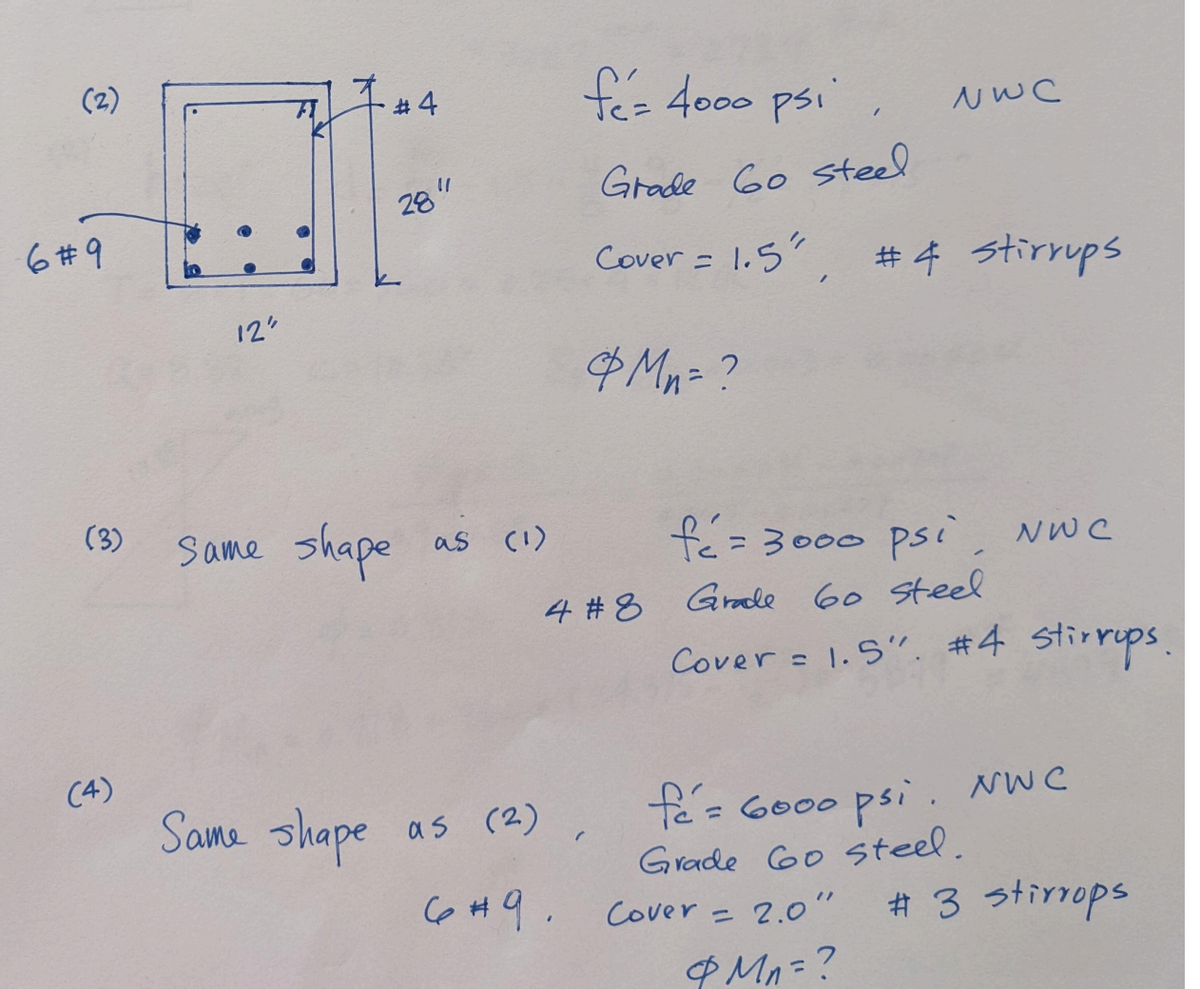 (2)
#4
28"
6 #9
12"
fc' = 4000 psi, NWC
Grade 60 steel
Cover = 1.5", #4 stirrups
φMn = ?
(3) Same shape as (1) fc' = 3000 psi, NWC
4 #8 Grade 60 steel
Cover = 1.5". #4 stirrups.
(4)
Same shape as (2), fc' = 6000 psi. NWC
Grade 60 steel.
6 #9. Cover = 2.0" #3 stirrops
φMn = ?